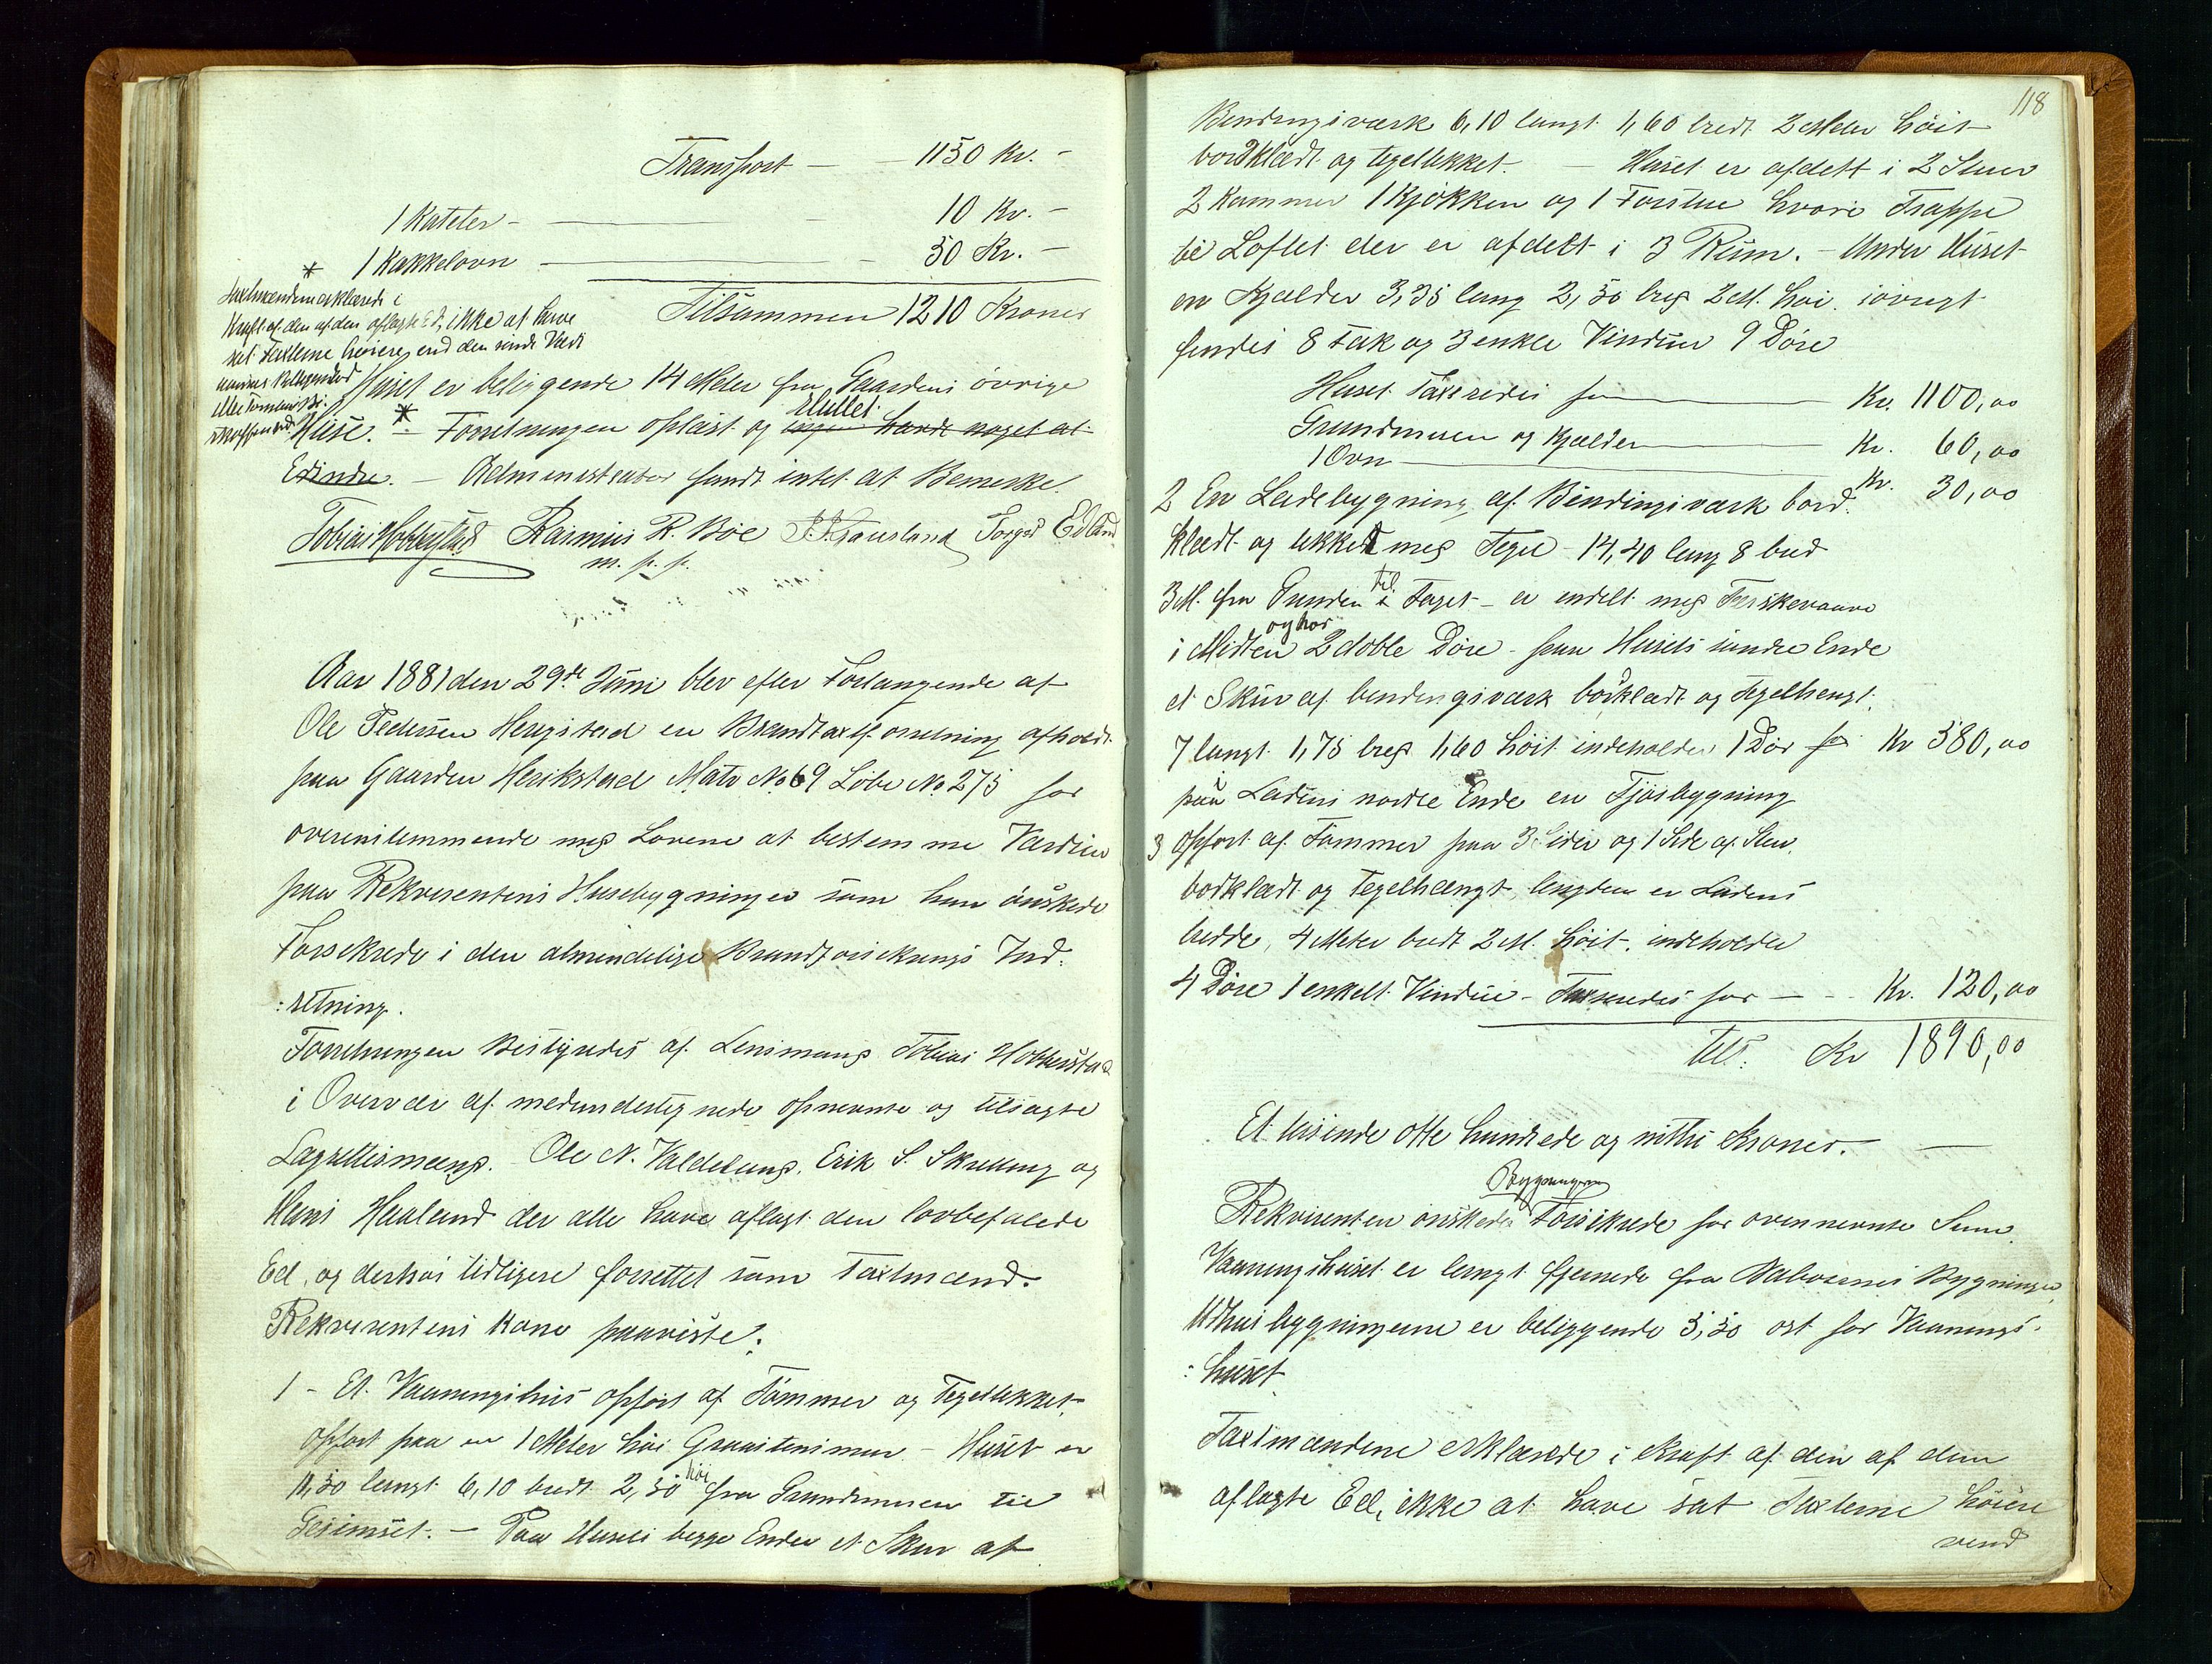 Transport — — 1150 Kr. -
1 Kateter - — 10 Kr. -
1 Kakkelovn — 50 Kr. -
Tilsammen 1210 Kroner
* Taxtmændene erklærede i
Kraft af den af dem aflagte Ed, ikke at have
sat Taxterne høiere end den sande Værdi
Huset er beliggende 14 Meter fra Gaardens øvrige
Huse. * - Forretningen oplæst og sluttet. ingen havde noget at
Erindre. - Administrator fandt intet at Bemerke.
Tobias Hobberstad Rasmus R. Bøe Torger Edland
m. p. p.
Aar 1881 den 29de Juni blev efter Forlangende af
Ole Pedersen Herigstad en Brandtaxtforretning afholdt
paa Gaarden Herikstad Matr No 69 Løbe No. 275 for
overenstemmende med Lovene at bestemme Værdien
paa Rekvirentens Husebygninger som han ønskede
Forsikrede i den almindelige Brandforsikrings Ind:
:retning.
Forretningen Bestyredes af Lensmand Tobias Hobberstad
i Overvær af medundertegnede opnevnte og tilsagte
Lagrettesmænd. - Ole N. Valdeland, Erik S. Skretting og
Hans Haaland der alle have aflagt den lovbefalede
Ed, og derhos tidligere forrettet som Taxtmænd.
Rekvirentens Kone paaviste:
1 - Et Vaaningshus opført af Tømmer og Tegeltekket
opført paa en 1 Meter høi Graastensmur - Huset er
11,50 langt 6,10 bredt 2,50 høi fra Grundmuren til
Gesimset. - Paa Husets begge Ender et Skur af
118
Bendingsværk 6,10 langt 1,60 bredt 2 Meter høit
bordklædt og tegeltekket. - Huset er afdelt i 2 Stuer
2 Kammer 1 Kjøkken og 1 Forstue hvori Trappe
til Loftet der er afdelt i 3 Rum. - Under Huset
en Kjælder 3,35 lang 2,50 bred 2 M. høi. iøvrigt
findes 8 Fak og 3 enkle Vinduer 9 Døre
Huset Taxeredes for — Kr. 1100,00
Grundmuren og Kjælder — Kr. 60,00
1 Ovn — Kr. 30,00
2 En Ladebygning af Bindingsværk bord:
klædt og tekket med Tegel - 14,40 lang 8 bred
3 M. fra Grunden til Taget - er indelt med Tærskevaane
i Midten og har 2 doble Døre - paa Husets søndre Ende
et Skur af bendingsværk bordklædt og Tegelhengt.
7 langt 1,75 bred 1,60 høit indeholder 1 Dør for Kr 580,00
paa Ladens nordre Ende en Fjøsbygning
3 opført af Tømmer paa 3 Sider og 1 Side af Sten.
bordklædt og Tegelhængt, lengden er Ladens
bredde, 4 Meter bredt 2 M. høit, indeholder
4 Døre 1 enkelt Vindue - Taxeredes for — - - Kr. 120,00
Tils. Kr 1890,00
Et tusinde otte hundrede og nitti Kroner. —
Rekvirenten ønskede Bygningerne Forsikrede for ovennevnte Sum.
Vaaningshuset er langt fjernede fra Naboernes Bygninger.
Udhusbygningerne er beliggende 5,50 øst for Vaanings-
: huset
Taxtmændene erklærede i Kraft af den af dem
aflagte Ed, ikke at have sat Taxterne høiere
vend